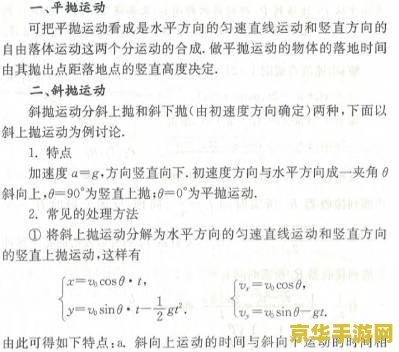 一、平抛运动
可把平抛运动看成是水平方向的匀速直线运动和竖直方向的
自由落体运动这两个分运动的合成.做平抛运动的物体的落地时间
由其抛出点距落地点的竖直高度决定.
二、斜抛运动
斜抛运动分斜上抛和斜下抛(由初速度方向确定)两种,下面以
斜上抛运动为例讨论.
1. 特点
加速度a=g,方向竖直向下.初速度方向与水平方向成一夹角θ
斜向上,θ=90°为竖直上抛;θ=0°为平抛运动.
2. 常见的处理方法
① 将斜上抛运动分解为水平方向的匀速直线运动和竖直方向
的竖直上抛运动,这样有
x=v₀cosθ·t,
y=v₀sinθ·t-1/2 gt².
vₓ=v₀cosθ,
v_y=v₀sinθ-gt.
由此可得如下特点:a. 斜向上运动的时间与斜向下运动的时间相
京华手游网